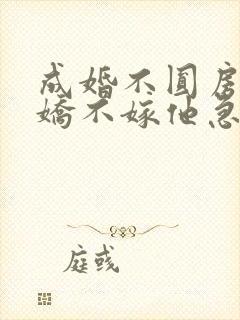 成婚不圆房
娇不嫁他急
庭彧